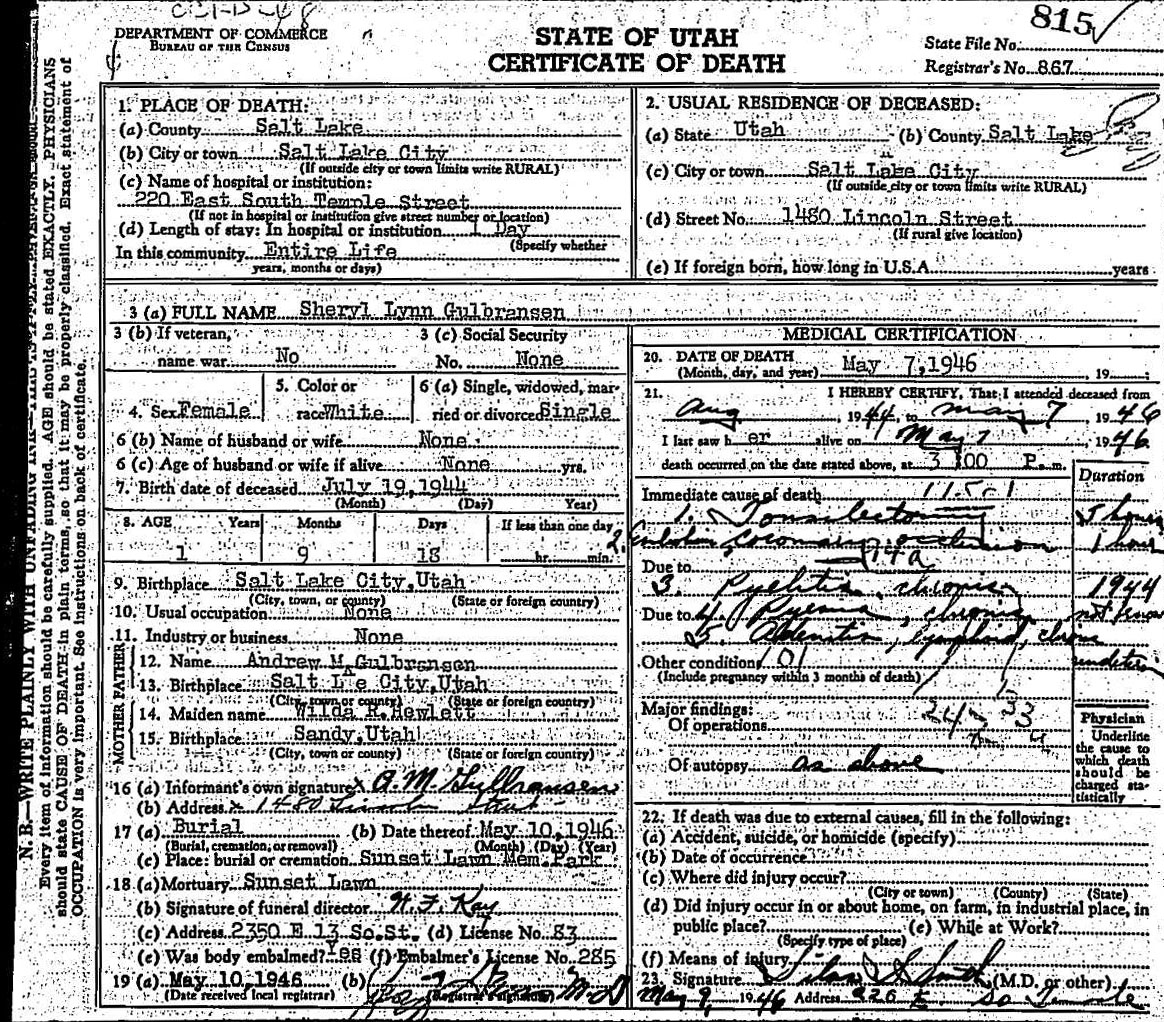 815
DEPARTMENT OF COMMERCE
BUREAU OF THE CENSUS
STATE OF UTAH
CERTIFICATE OF DEATH
State File No.
Registrar's No. 867
N. B.—WRITE PLAINLY WITH UNFADING INK—
Every item of information should be carefully supplied. AGE should be stated EXACTLY. PHYSICIANS
should state CAUSE OF DEATH in plain terms, so that it may be properly classified. Exact statement of
OCCUPATION is very important. See instructions on back of certificate.
1. PLACE OF DEATH:
(a) County Salt Lake
(b) City or town Salt Lake City
(If outside city or town limits write RURAL)
(c) Name of hospital or institution:
220 East South Temple Street
(If not in hospital or institution give street number or location)
(d) Length of stay: In hospital or institution 1 Day
(Specify whether
In this community Entire Life
years, months or days)
2. USUAL RESIDENCE OF DECEASED:
(a) State Utah (b) County Salt Lake
(c) City or town Salt Lake City
(If outside city or town limits write RURAL)
(d) Street No. 1480 Lincoln Street
(If rural give location)
(e) If foreign born, how long in U.S.A. years
3 (a) FULL NAME Sheryl Lynn Gulbransen
3 (b) If veteran, 3 (c) Social Security
name war No No. None
4. Sex Female 5. Color or race White 6 (a) Single, widowed, married or divorced Single
6 (b) Name of husband or wife None
6 (c) Age of husband or wife if alive None yrs.
7. Birth date of deceased July 19, 1944
(Month) (Day) Year)
8. AGE Years Months Days If less than one day
1 9 18 hr. min.
9. Birthplace Salt Lake City, Utah
(City, town, or county) (State or foreign country)
10. Usual occupation None
11. Industry or business None
MOTHER FATHER
12. Name Andrew M Gulbransen
13. Birthplace Salt L e City, Utah
(City, town or county) (State or foreign country)
14. Maiden name Wilda R. Hewlett
15. Birthplace Sandy, Utah
(City, town or county) (State or foreign country)
16 (a) Informant's own signature x A. M. Gulbransen
(b) Address x 1480 Lincoln Street
17 (a) Burial (b) Date thereof May 10, 1946
(Burial, cremation, or removal) (Month) (Day) (Year)
(c) Place: burial or cremation Sunset Lawn Mem. Park
18 (a) Mortuary Sunset Lawn
(b) Signature of funeral director W. F. Kay
(c) Address 2350 E. 13 So. St. (d) License No. 83
(e) Was body embalmed? Yes (f) Embalmer's License No. 285
19 (a) May 10, 1946 (b) M D
(Date received local registrar) (Registrar's signature)
MEDICAL CERTIFICATION
20. DATE OF DEATH May 7, 1946, 19
(Month, day, and year)
21. I HEREBY CERTIFY, That I attended deceased from
Aug, 1944 to May 7, 1946
I last saw h er alive on May 7, 1946
death occurred on the date stated above, at 3 00 P. m.
Duration
Immediate cause of death 115-1
1. Tonsilectomy 5 hours
2. coronary occlusion 1 hour
Due to 94a
3. Pyelitis, chronic 1944
Due to 4. Pyemia, chronic not know
5. Adenitis, lymphoid, chronic
Other condition 101
(Include pregnancy within 3 months of death)
Major findings:
Of operations
Of autopsy as above
Physician
Underline
the cause to
which death
should be
charged statistically
22. If death was due to external causes, fill in the following:
(a) Accident, suicide, or homicide (specify)
(b) Date of occurrence
(c) Where did injury occur?
(City or town) (County) (State)
(d) Did injury occur in or about home, on farm, in industrial place, in
public place? (e) While at Work?
(Specify type of place)
(f) Means of injury
23. Signature Silas S. Smith (M.D. or other)
May 9, 1946 Address 220 E. So Temple